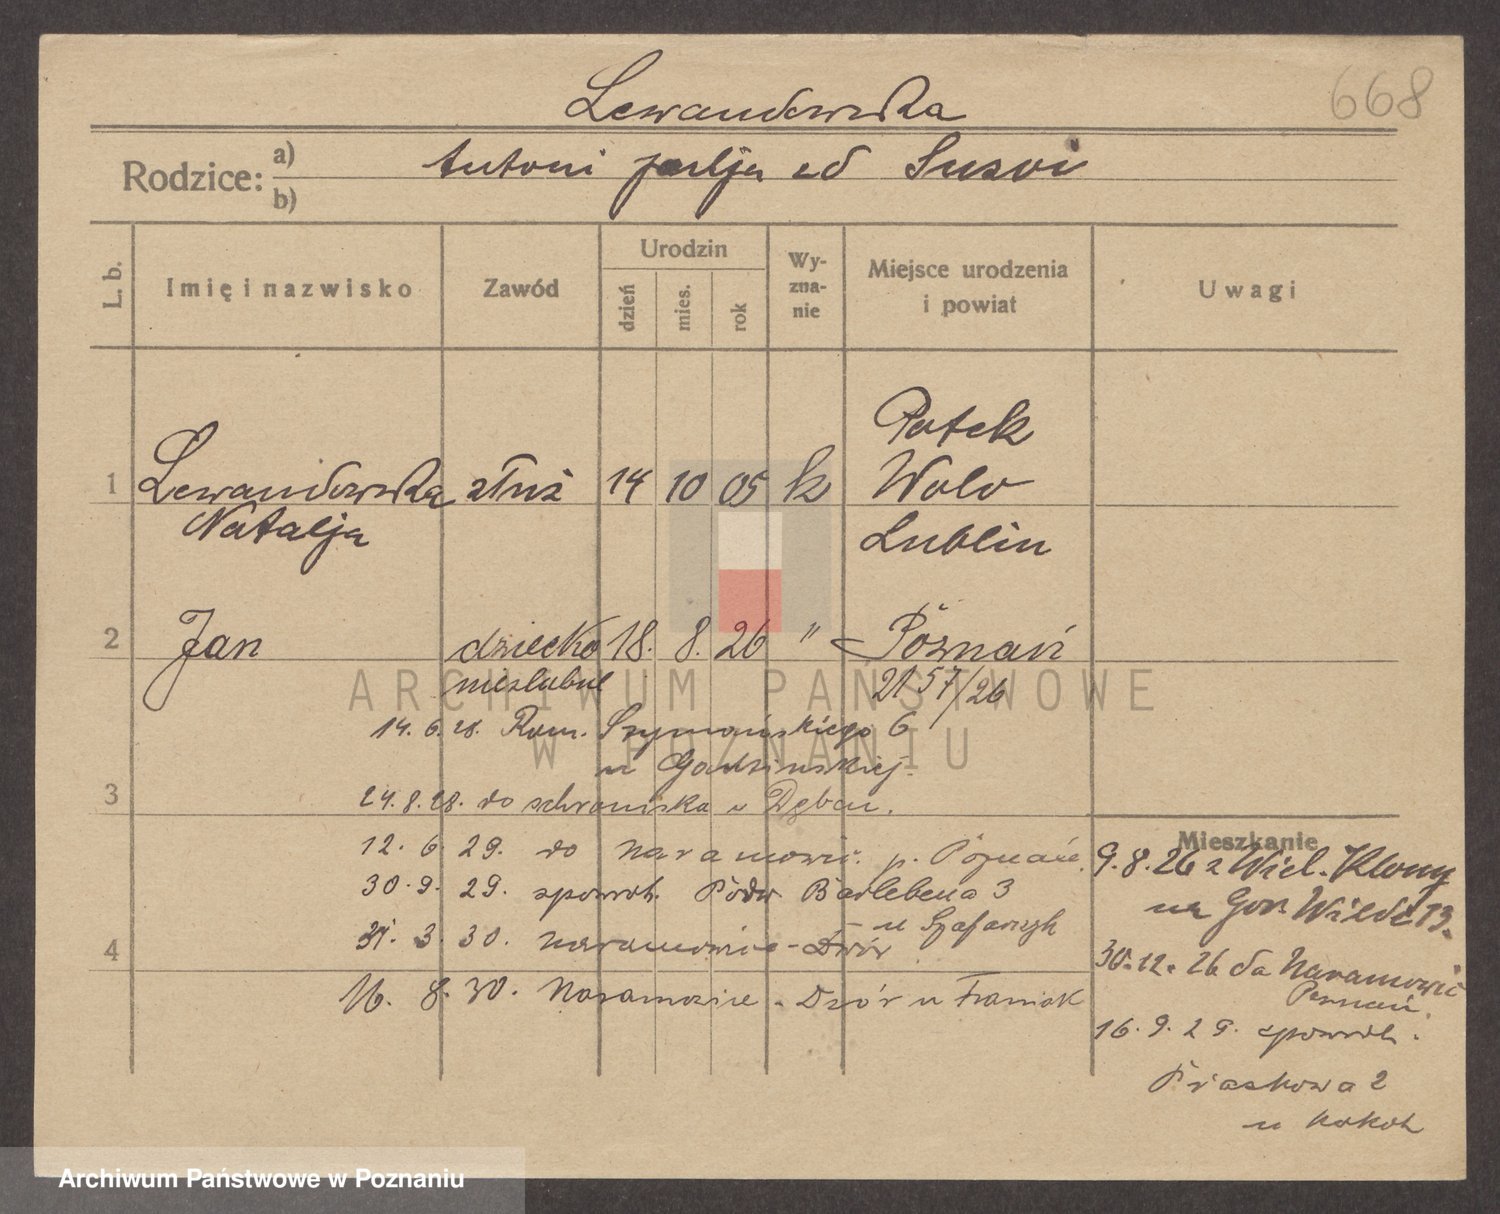 668
Lewandowska
Rodzice: a) Antoni
b)
L. b.
Imię i nazwisko
Zawód
Urodzin
dzień
mies.
rok
Wy-
zna-
nie
Miejsce urodzenia
i powiat
Uwagi
Potok
1 Lewandowska służ 14 10 05 k Wola
Natalja Lublin
2 Jan dziecko 18. 8. 26 " Poznań
nieślubne 2157/26
ARCHIWUM PAŃSTWOWE
W POZNANIU
14. 6. 28. Rom. Szymańskiego 6
u Godzińskiej.
3 24. 8. 28. do schroniska u Dębcu.
12. 6. 29. do Naramowic. p. Poznań.
30. 9. 29. spowrot. Podw. Bartebena 3
u Szafarczyk
4 31. 3. 30. Naramowice - Dwór
16. 8. 30. Naramowice - Dwór u Franiak
Mieszkanie
9. 8. 26 z Wiel. Klony
na Gór. Wildę 13.
30. 12. 26 do Naramowic
Poznań.
16. 9. 29. spowrot.
Piaskowa 2
u
Archiwum Państwowe w Poznaniu